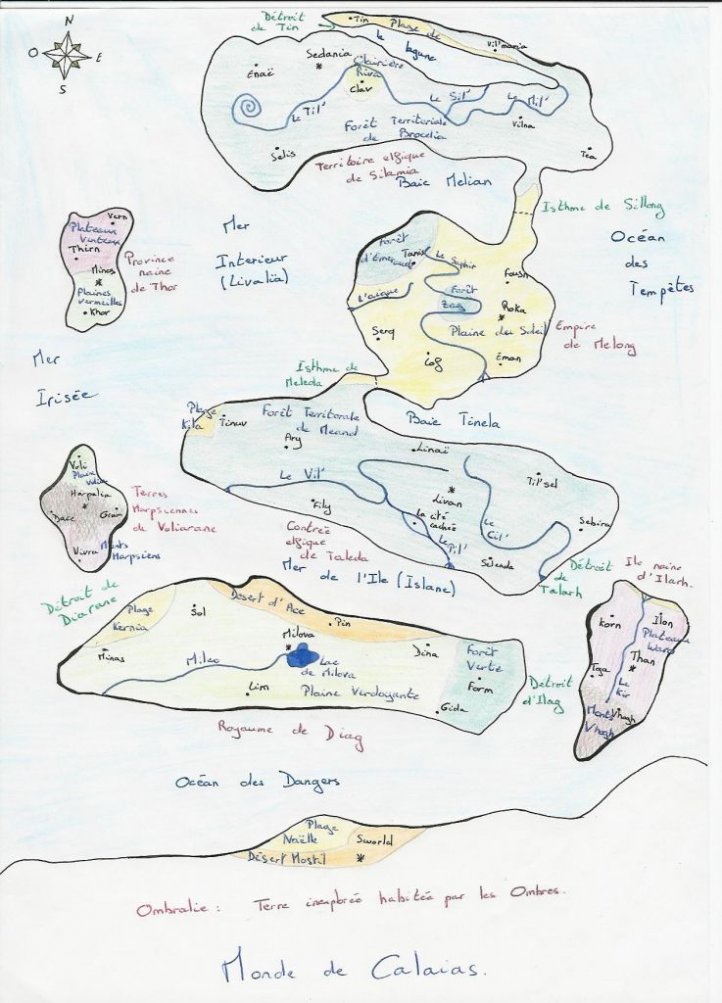 N
O
E
S
Détroit
de Tin
Tin
Plage de
la lagune
Vil'mania
Enaë
Sedania
Clairière
Riva
Clav
Le Til'
Le Sil'
Le Mil'
Forêt Territoriale
de Brocelia
Vilna
Selis
Tea
Territoire elfique
de Silamia
Baie Melian
Isthme de Sillong
Océan
des
Tempêtes
Mer
Interieur
(Livalia)
Vern
Plateaux
Venteux
Thirn
Minos
Plaines
Vermeilles
Khor
Province
naine
de Thor
Forêt
d'Emeraude
Tanis
Le Saphir
Fousn
Forêt
Zang
Roka
Plaine du Soleil
Serq
Log
Eman
Empire
de Melong
Mer
Irisée
Isthme de
Meleda
Plage
Kita
Tinuv
Forêt Territoriale
de Meand
Baie Tinela
Ary
Linaë
Le Vil'
Til'sel
Livan
La cité
cachée
Fily
Le Cil'
Sebira
Le Pil'
Contrée
elfique
de Taleda
Voli
Harpalia
Dace
Gran
Vivru
Monts
Harpsiens
Terres
Harpsiennes
de Voliarane
Mer de l'Ile (Islane)
Détroit
de
Talarh
Ile naine
d'Ilarh
Détroit de
Diarane
Plage
Kernia
Sol
Désert d'Ace
Pin
Milova
Minas
Mileo
Lac
de Milova
Dina
Forêt
Verte
Form
Lim
Plaine Verdoyante
Gida
Détroit
d'Ilag
Korn
Ilon
Plateaux
Warp
Than
Tga
Le
Kir
Monts
V'hagh
V'hagh
Royaume de Diag
Océan des Dangers
Plage
Naëlle
Sworld
Désert Mostil
Ombralie : Terre inexplorée habitée par les Ombres.
Monde de Calaias.